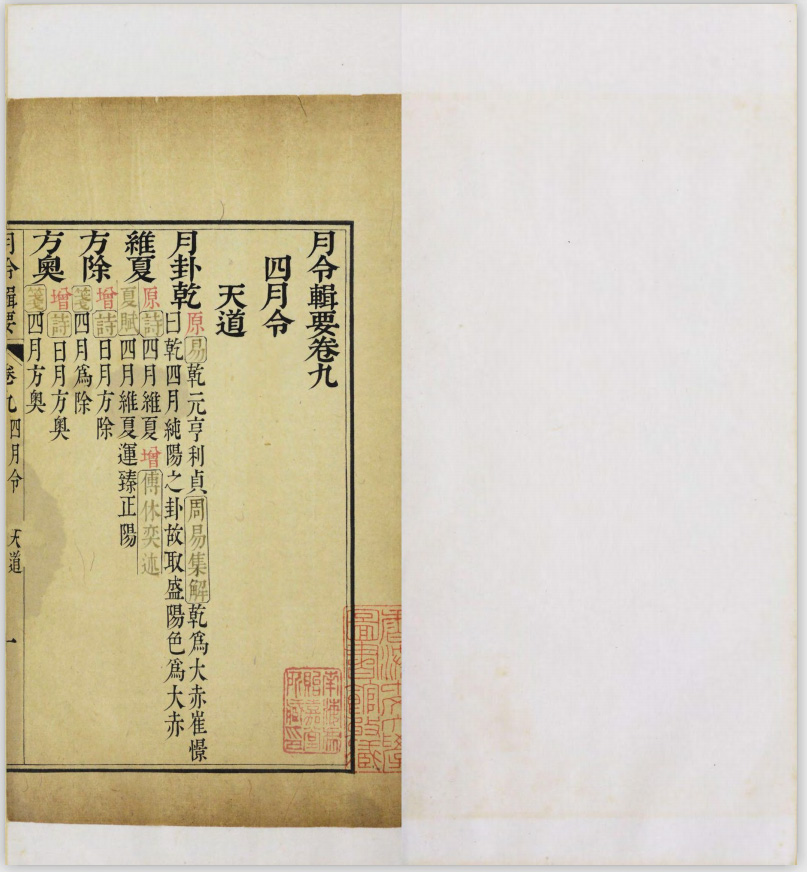 月令輯要卷九
四月令
天道
月卦乾原易乾元亨利貞周易集解乾爲大赤崔憬
曰乾四月純陽之卦故取盛陽色爲大赤
維夏原詩四月維夏增傅休奕述
夏賦四月維夏運臻正陽
方除增詩日月方除
箋四月爲除
方奥增詩日月方奥
箋四月方奥
月令輯要 卷九四月令 天道 一